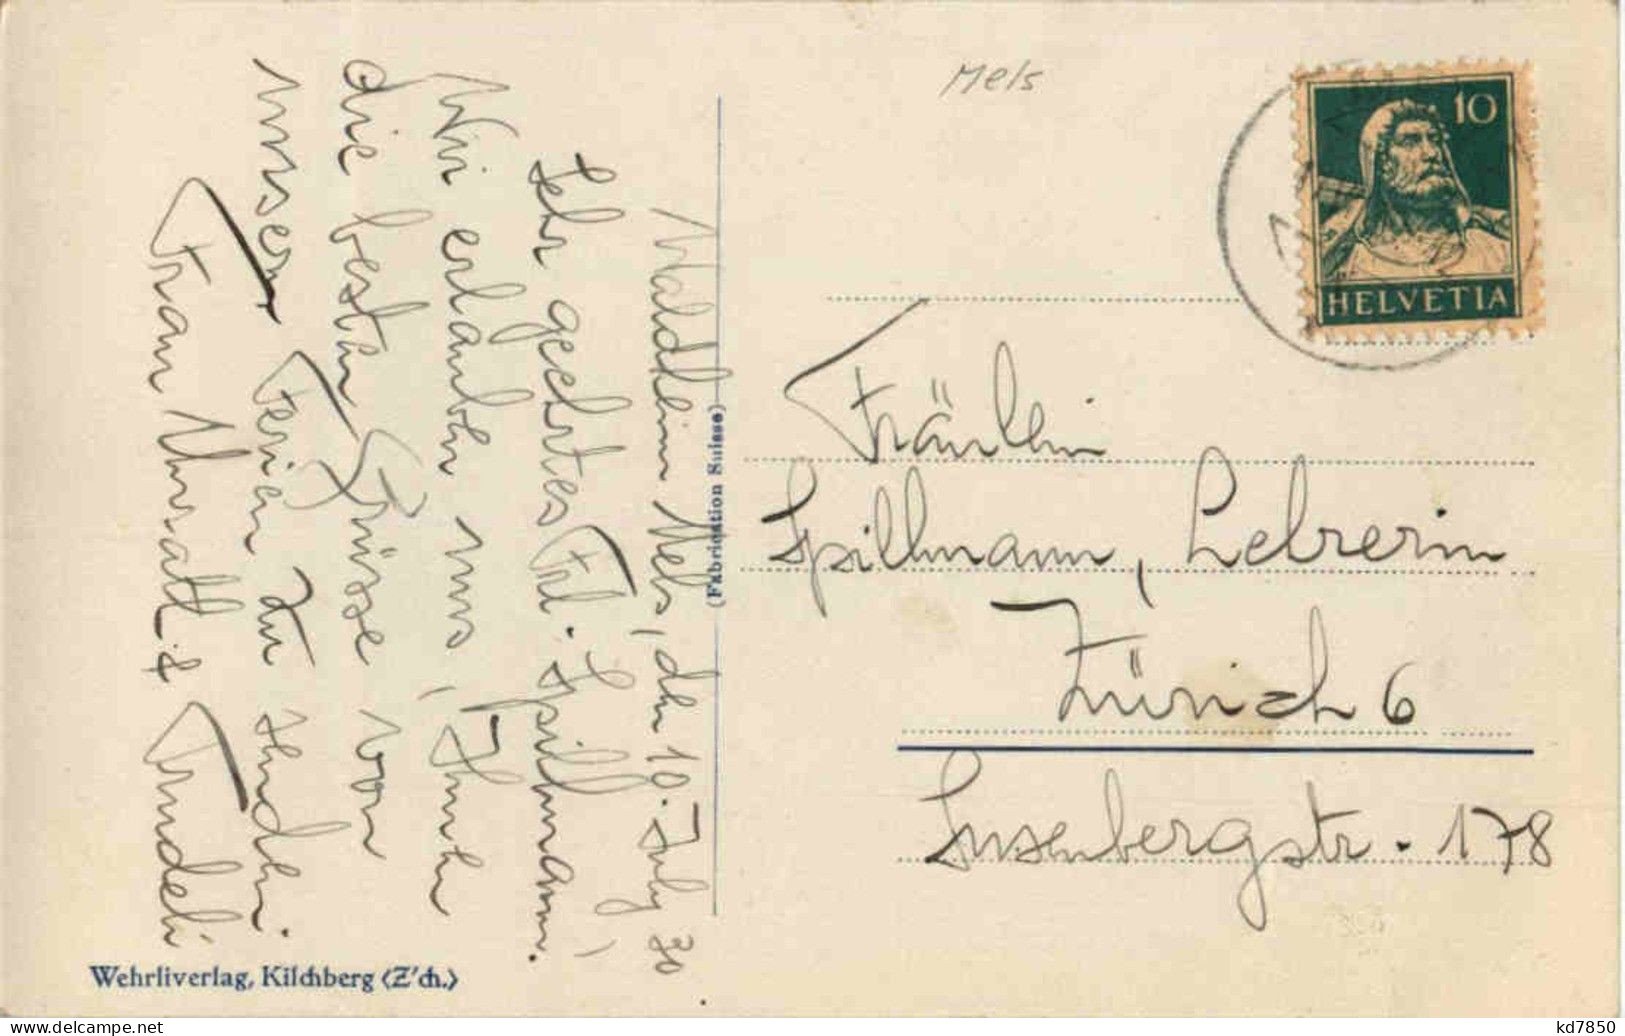 Mels
10
HELVETIA
Waldheim Mels, den 10. July 30
Sehr geehrtes Frl. Spillmann,
Wir erlauben uns, Ihnen
die besten Grüsse von
unsern Ferien zu senden.
Frau Unrath & Trudeli
(Fabrication Suisse)
Fräulein
Spillmann, Lehrerin
Zürich 6
Susenbergstr. 178
Wehrliverlag, Kilchberg (Z'ch.)
kd7850